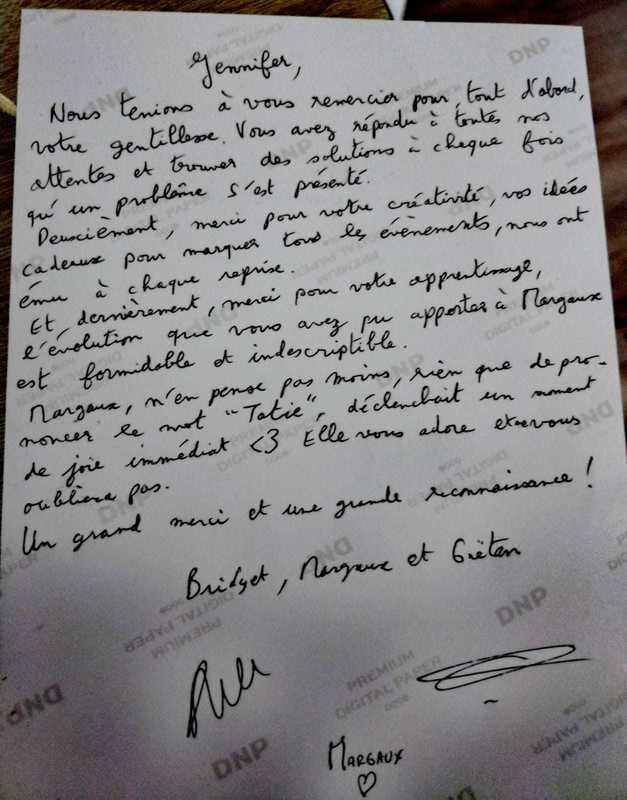 Jennifer,
Nous tenions à vous remercier pour, tout d'abord,
votre gentillesse. Vous avez répondu à toutes nos
attentes et trouver des solutions à chaque fois
qu'un problème s'est présenté.
Deuscièment, merci pour votre créativité, vos idées
cadeaux pour marquer tous les évènements, nous ont
ému à chaque reprise.
Et, dernièrement, merci pour votre apprentissage,
l'évolution que vous avez pu apporter à Margaux
est formidable et indescriptible.
Margaux, n'en pense pas moins, rien que de pro-
noncer le mot "Tatie", déclenchait un moment
de joie immédiat <3 Elle vous adore et vous
oubliera pas.
Un grand merci et une grande reconnaissance !
Bridget, Margaux et Gaëtan
MARGAUX
DNP
PREMIUM
DIGITAL PAPER